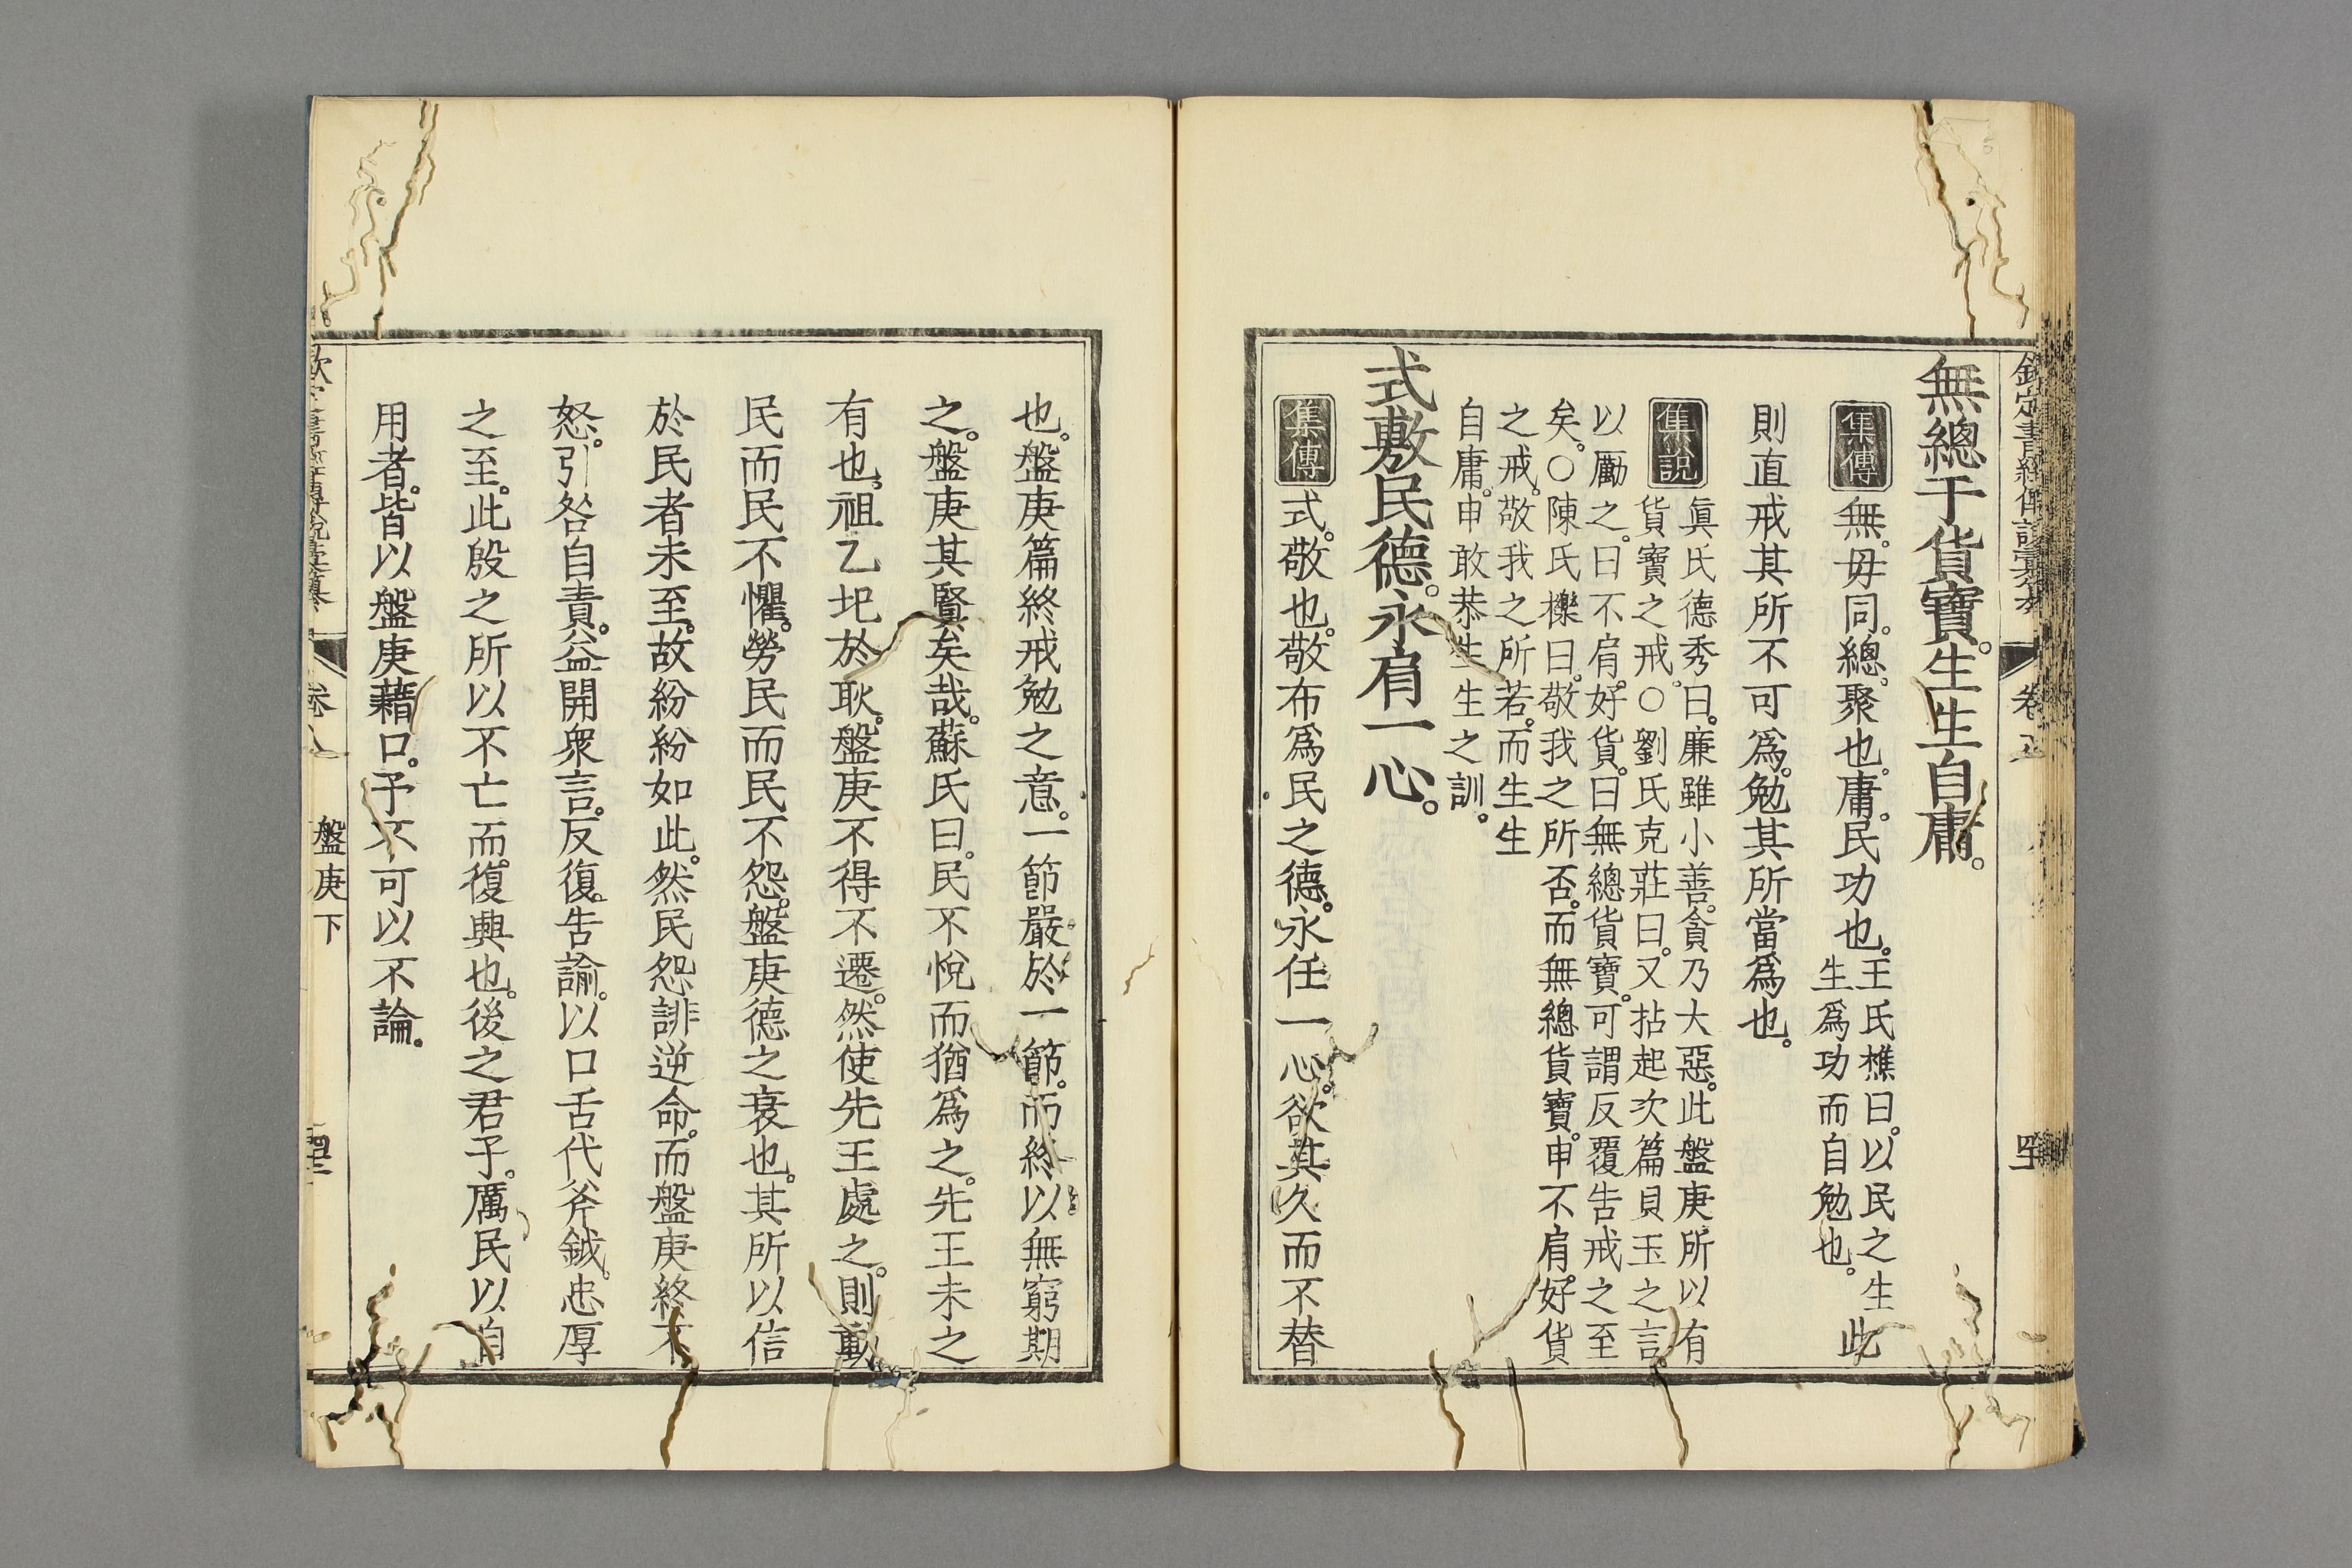 無總于貨寶。生生自庸。
集傳 無。毋同。總。聚也。庸。民功也。王氏樵曰。以民之生
生爲功而自勉也。此
則直戒其所不可爲。勉其所當爲也。
集說 眞氏德秀曰。廉雖小善。貪乃大惡。此盤庚所以有
貨寶之戒。○劉氏克莊曰。又拈起次篇貝玉之言
以勵之。曰不肩。好貨。曰無總貨寶。可謂反覆告戒之至
矣。○陳氏櫟曰。敬我之所否。而無總貨寶。申不肩。好貨
之戒。敬我之所若。而生生
自庸。申敢恭生生之訓。
式敷民德。永肩一心。
集傳 式。敬也。敬布爲民之德。永任一心。欲其久而不替
也。盤庚篇終戒勉之意。一節嚴於一節。而終以無窮期
之。盤庚其賢矣哉。蘇氏曰。民不悅而猶爲之。先王未之
有也。祖乙圯於耿。盤庚不得不遷。然使先王處之。則動
民而民不懼。勞民而民不怨。盤庚德之衰也。其所以信
於民者未至。故紛紛如此。然民怨誹逆命。而盤庚終不
怒。引咎自責。益開衆言。反復。告諭。以口舌代斧鉞。忠厚
之至。此殷之所以不亡而。復興也。後之君子。厲民以自
用者。皆以盤庚藉口。予不可以不論。
卷八
盤庚下